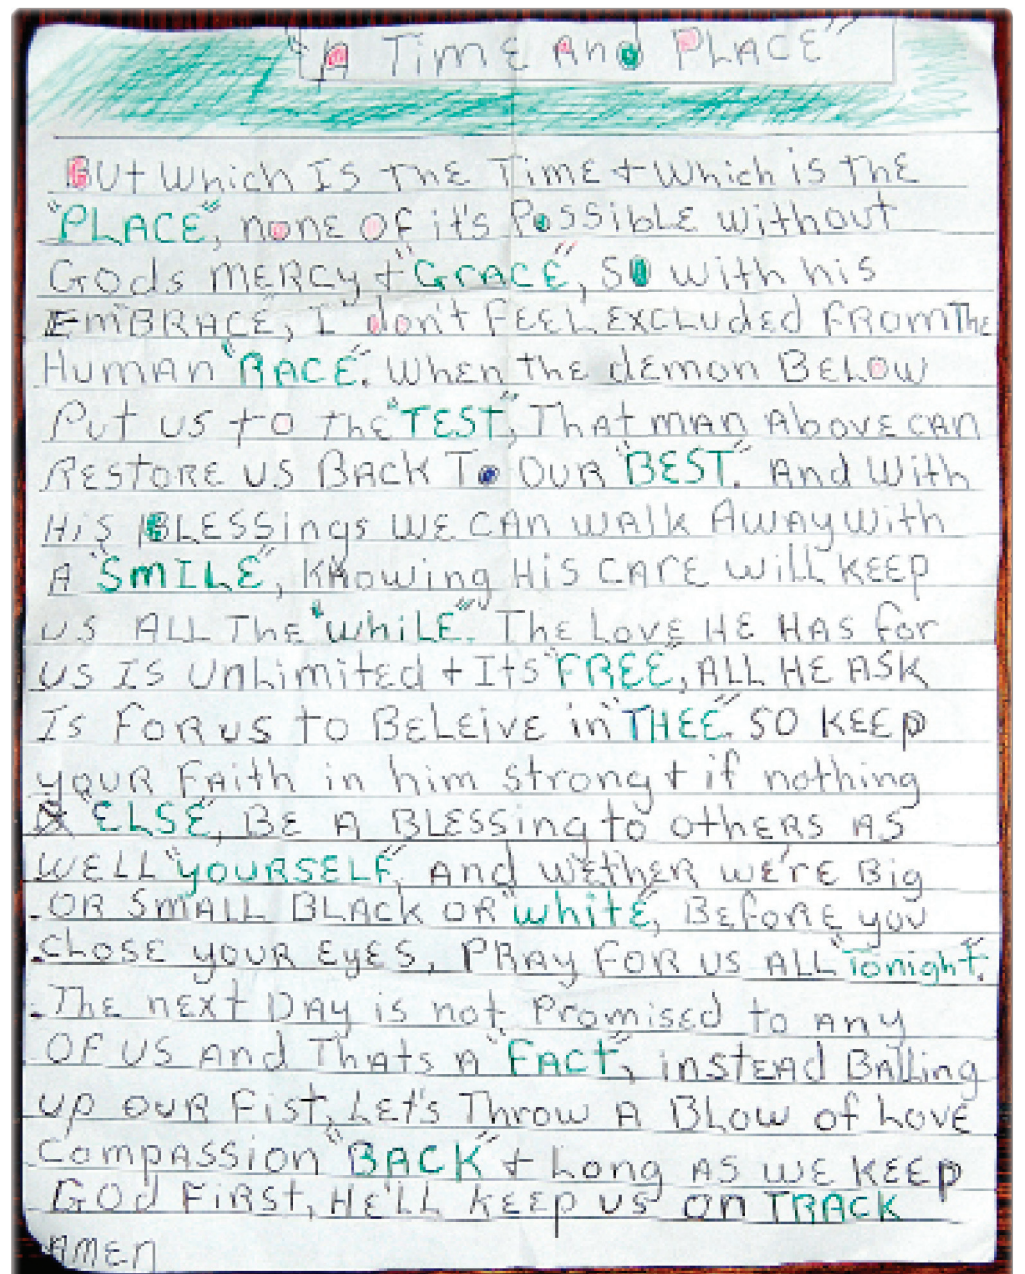 "A Time And PLACE"
But which Is The Time + which is the
"PLACE", none of it's Possible without
Gods MERCY + "GrACE", SO with his
EmBRACE, I don't FEEL EXCLUdEd FROm THE
HumAN "RACE". WHEN the dEmon BELOW
Put us to the "TEST", THAt mAN Above cAN
RESTORE US BACK TO OUR "BEST". And With
His BLESSings WE CAN WALK AWAY with
A "SmILE", Knowing His CArE will KEEP
us ALL The "whiLE". The Love HE HAS for
US Is UnLimitEd + Its "FREE", ALL HE ASK
Is FOR us to BELEivE in "THEE" SO KEEP
youR FAith in him strong + if nothing
"ELSE", BE A BLESSing to othERS AS
WELL "yOURSELF", And wEthER wE'rE Big
OR SmALL BLACK OR "whitE", BEForE you
CLOSE yOUR EyES, PRAy FOR us ALL "Tonight".
The nExt DAy is not Promised to Any
OF US And ThAts A "FAct", instEAd BALLing
up OUR Fist, LEt's Throw A BLow of LovE
CompASSion "BACK" + Long AS WE KEEP
GOD FIRSt, HE'LL KEEP us on TRACK
AmEn